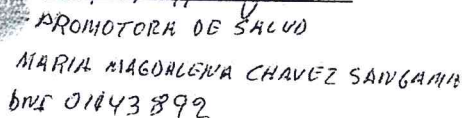 PROMOTORA DE SALUD
MARIA MAGDALENA CHAVEZ SANGAMA
DNI 01143892